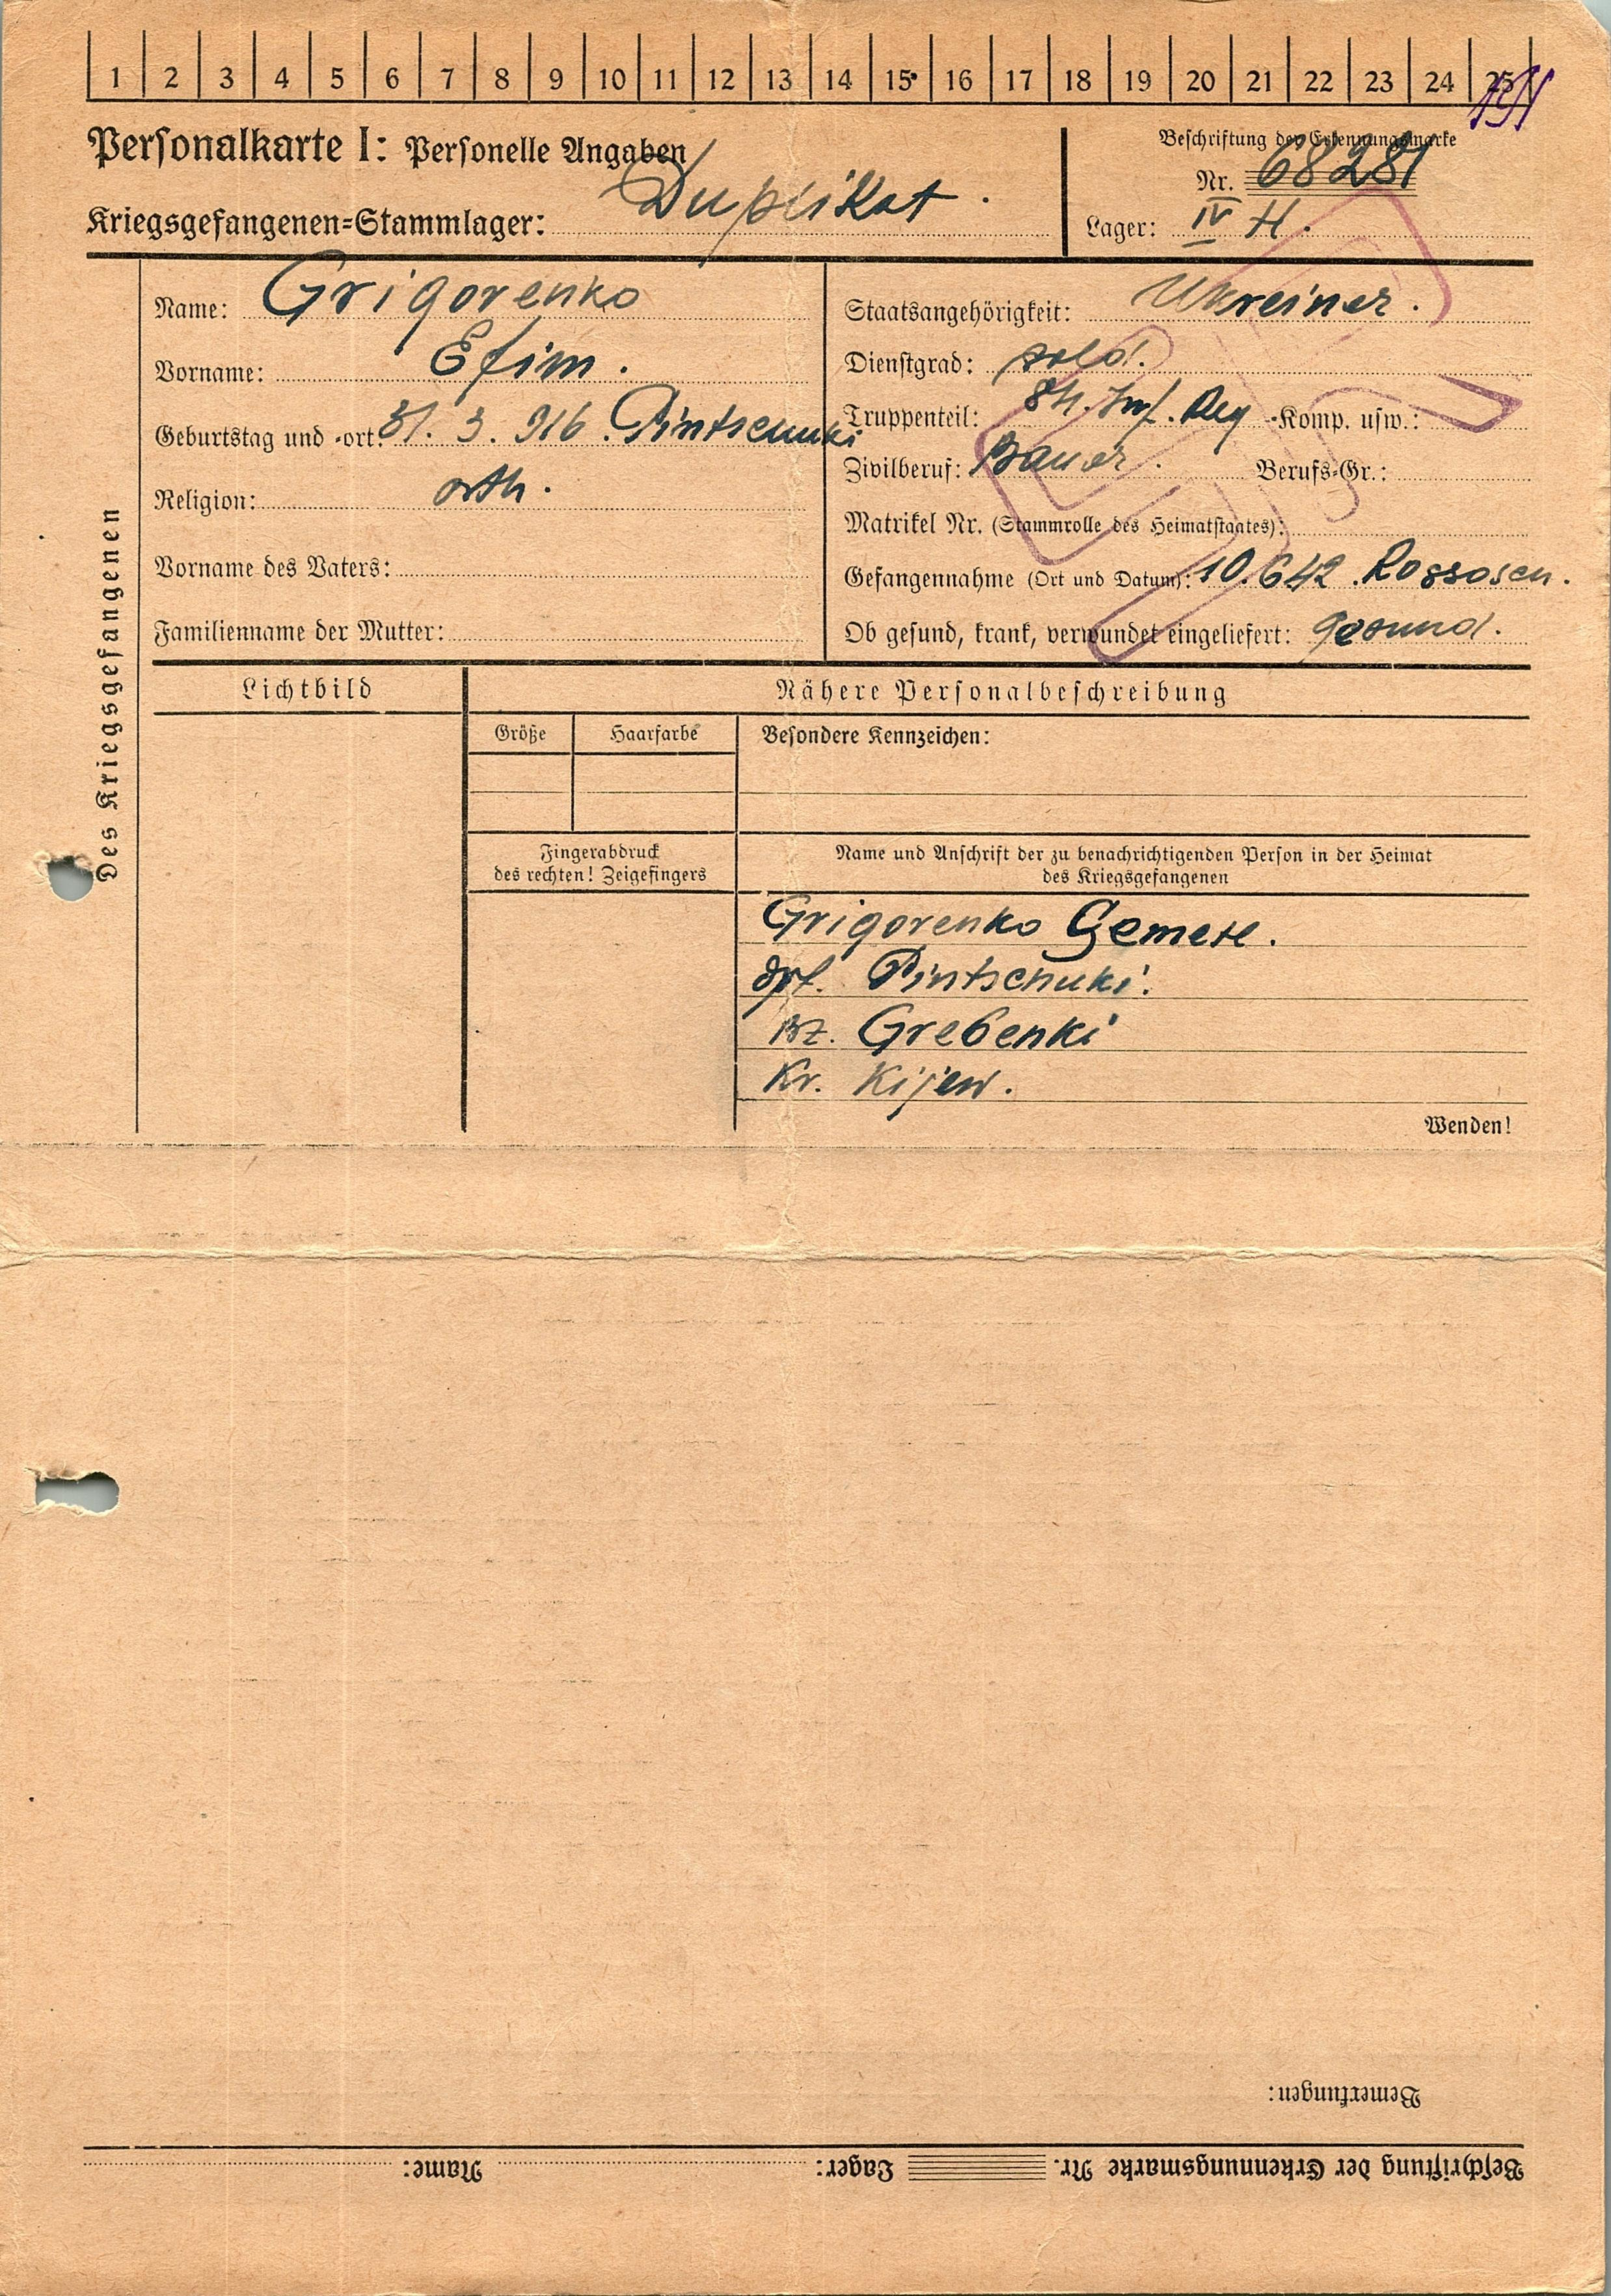 1 2 3 4 5 6 7 8 9 10 11 12 13 14 15 16 17 18 19 20 21 22 23 24 25
Personalkarte I: Personelle Angaben
Kriegsgefangenen=Stammlager: Duplikat.
Beschriftung der Erkennungsmarke
Nr. 68281
Lager: IV H.
Des Kriegsgefangenen
Name: Grigorenko
Vorname: Efim.
Geburtstag und -ort: 31. 3. 916. Pintschuki
Religion: orth.
Vorname des Vaters:
Familienname der Mutter:
Staatsangehörigkeit: Ukreiner.
Dienstgrad: sold.
Truppenteil: 84. Inf. Reg -Komp. usw.:
Zivilberuf: Bauer. Berufs=Gr.:
Matrikel Nr. (Stammrolle des Heimatstaates):
Gefangennahme (Ort und Datum): 10.642. Rossosch.
Ob gesund, krank, verwundet eingeliefert: gesund.
Lichtbild
Nähere Personalbeschreibung
Größe Haarfarbe Besondere Kennzeichen:
Fingerabdruck
des rechten! Zeigefingers
Name und Anschrift der zu benachrichtigenden Person in der Heimat
des Kriegsgefangenen
Grigorenko
Pintschuki.
Bz. Grebenki
Kr. Kijew.
Wenden!
Bemerkungen:
Beschriftung der Erkennungsmarke Nr. Lager: Name: